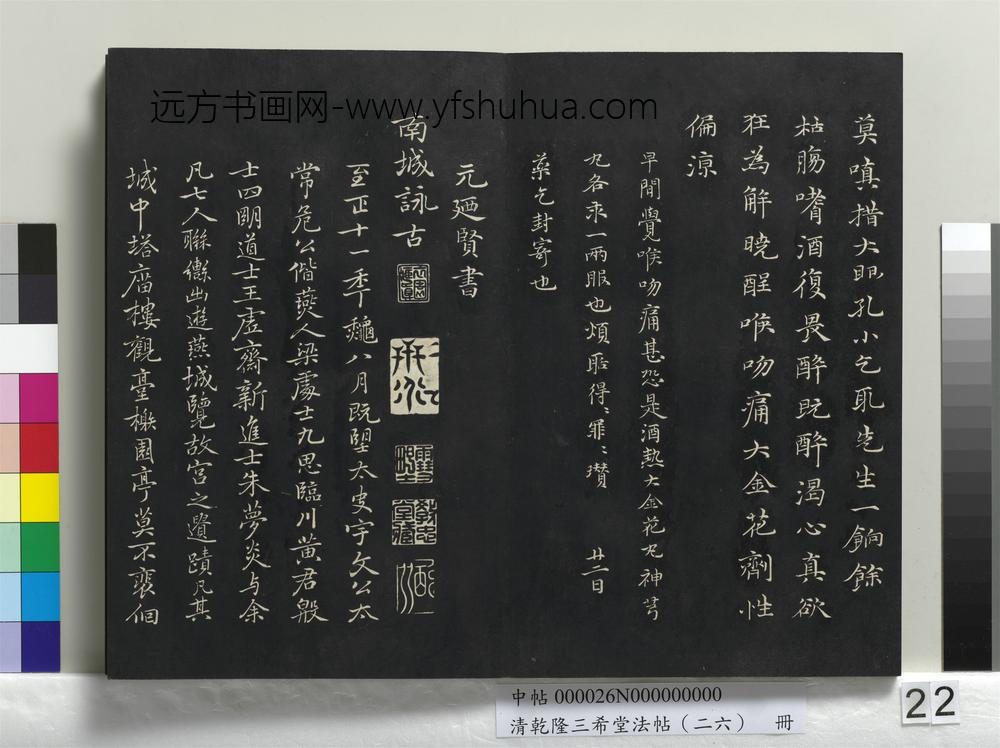 远方书画网-www.yfshuhua.com
莫嗔措大眼孔小乞取先生一餉餘
枯腸嗜酒復畏醉既醉渴心真欲
狂為解曉酲喉吻痛大金花劑性
偏涼
早間覺喉吻痛甚恐是酒熱大金花丸神芎
丸各求一兩服也煩聒得〻罪〻瓚
廿二日
藥乞封寄也
元廼賢書
南城詠古
至正十一年秋八月既望太史宇文公太
常危公偕燕人梁處士九思臨川黃君殷
士四明道士王虛齋新進士朱夢炎与余
凡七人聯轡出遊燕城覽故宮之遺蹟凡其
城中塔廟樓觀臺榭園亭莫不裵佪
中帖 000026N000000000
清乾隆三希堂法帖（二六） 冊
22